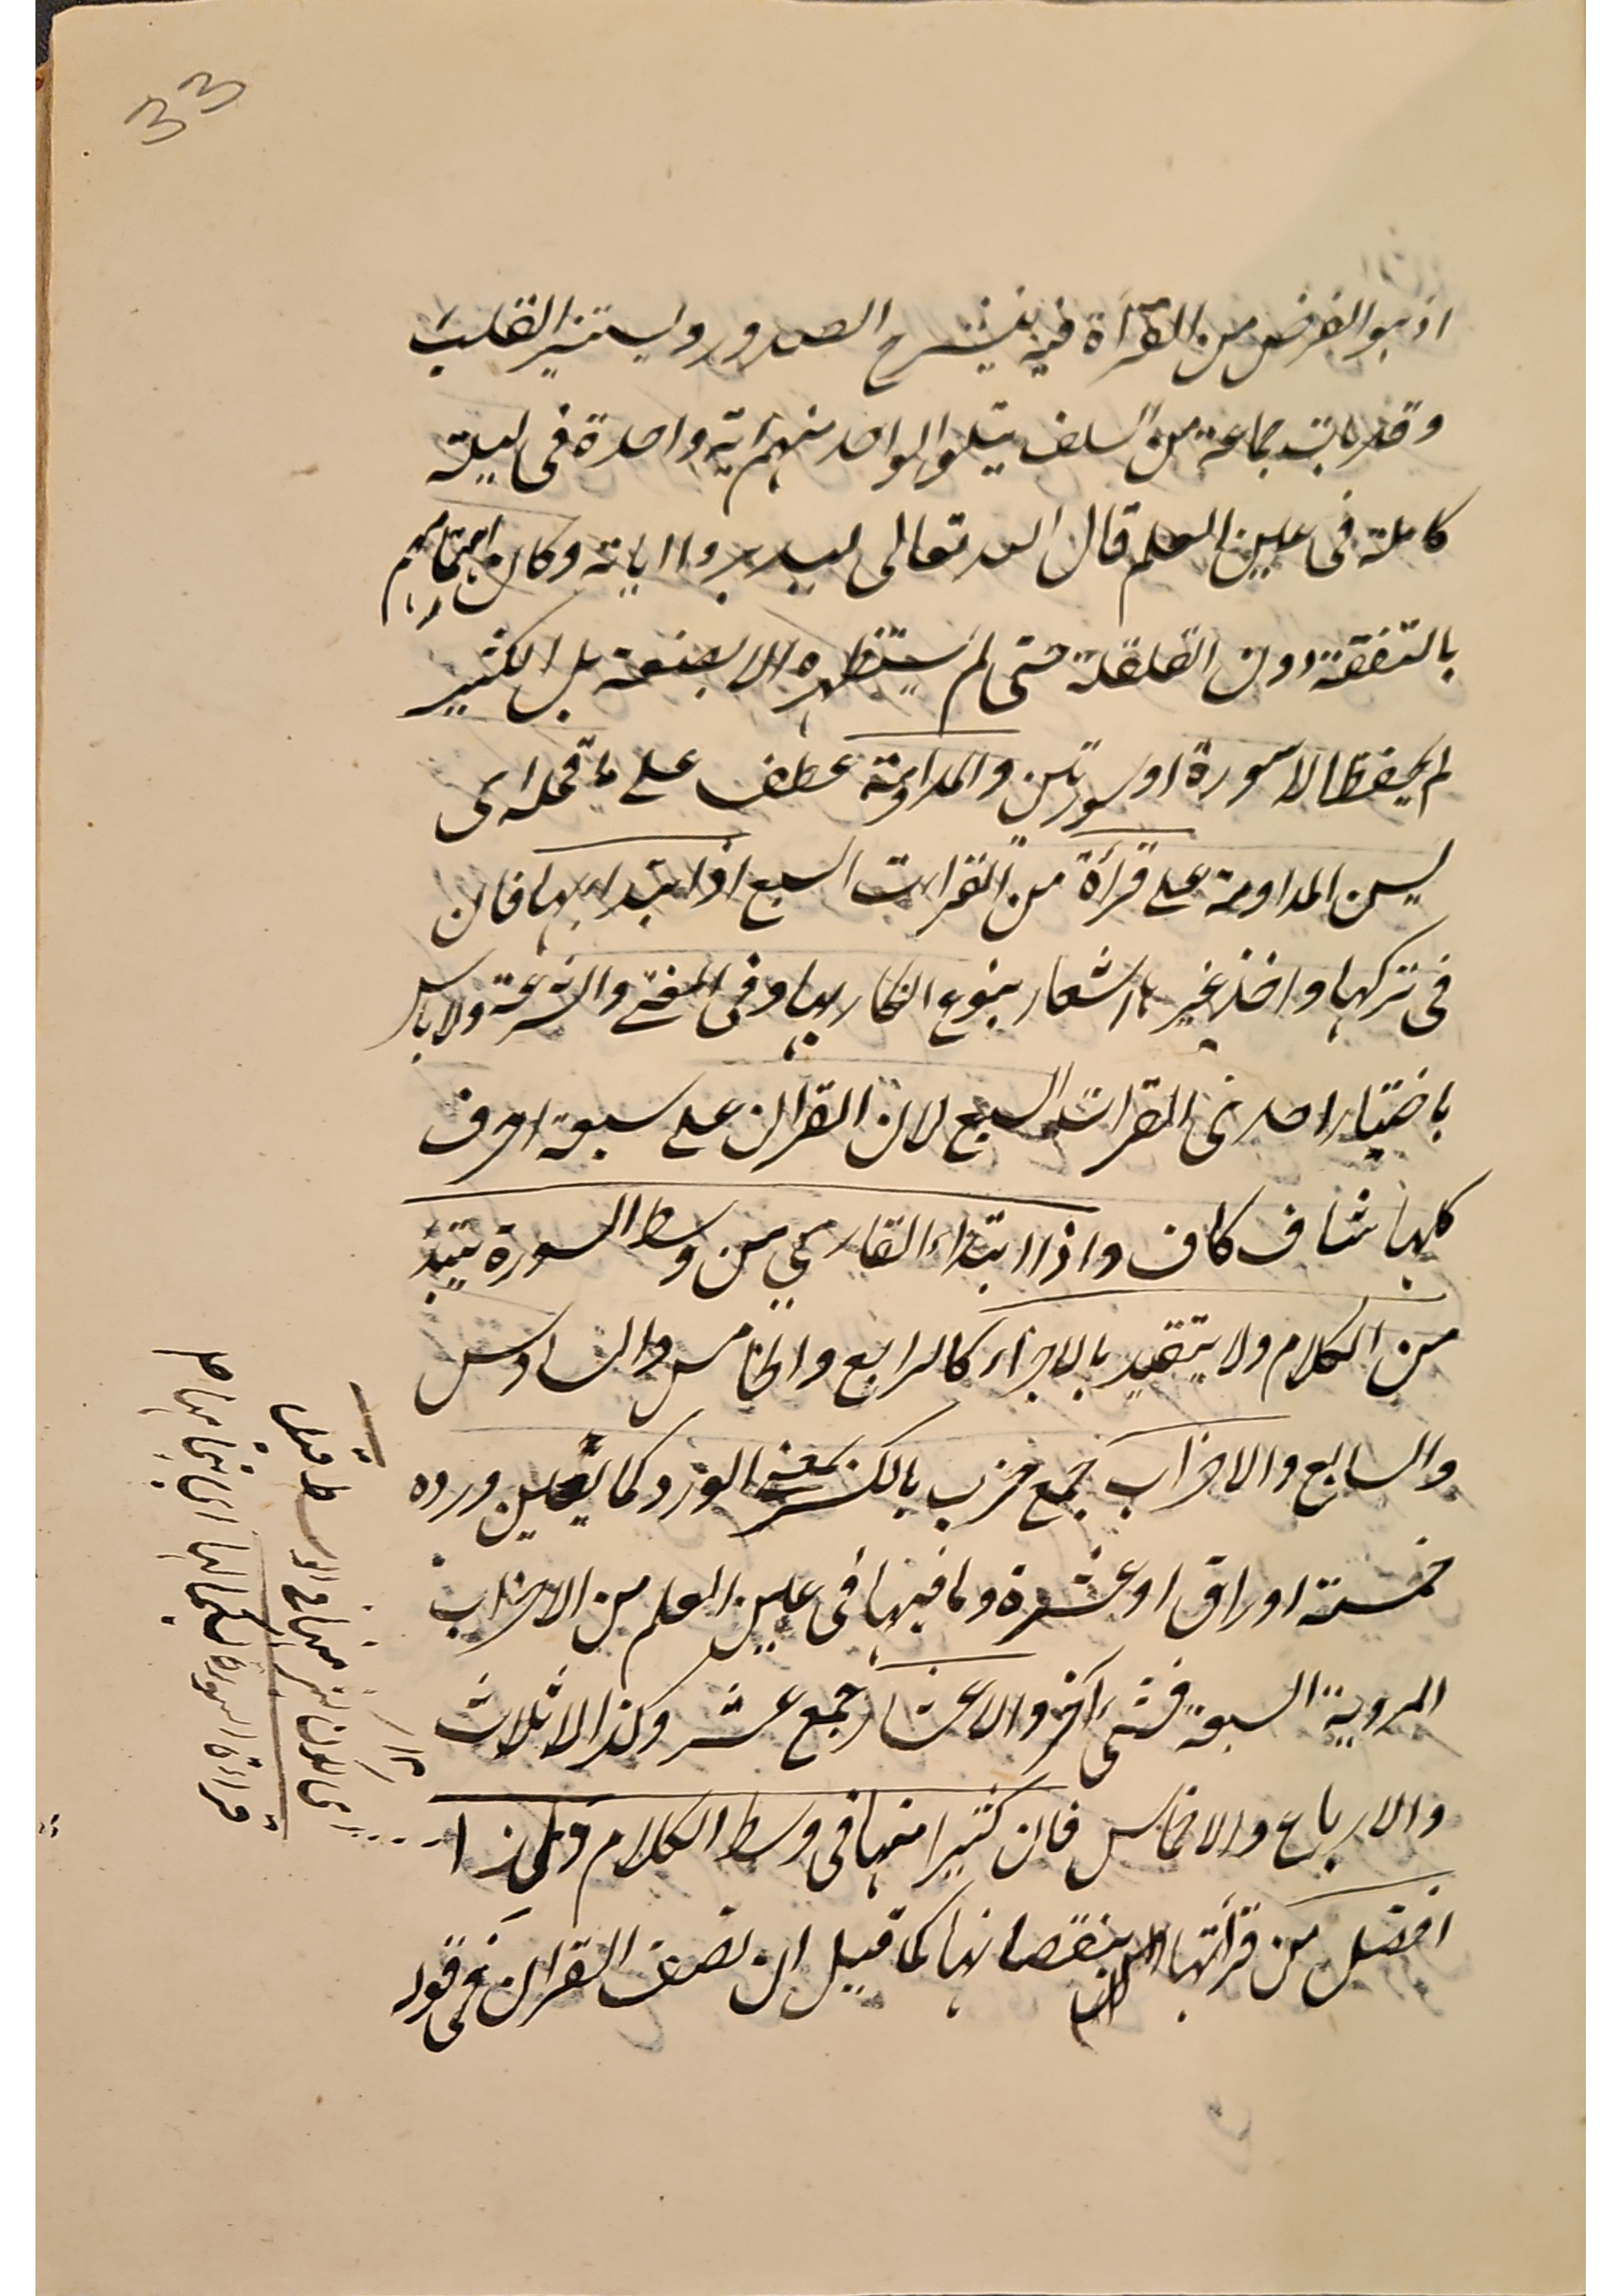 33
اذ هو الغرض من القرآة فيه ينشرح الصدور ويستنير القلب
وقد بات جماعة من السلف يتلو الواحد منهم اية واحدة فى ليلة
كاملة فى عين العلم قال الله تعالى ليدبروا اياته وكان اهتمامهم
بالتفقه دون القلقلة حتى لم يستظهره الا بضعة بل الكثير
لم يحفظ الا سورة او سورتين والمداومة عطف على ما قبله اى
يسن المداومة على قرأة من القرات السبع اذا ابتدا بها فان
فى تركها واخذ غيرها اشعار بنوع انكار بها وفى المفتح والشرعة ولا باس
باختيار احدى القرات السبع لان القران على سبعة احرف
كلها شاف كاف واذا ابتداء القاري من وسط السورة يبتدئ
من الكلام ولا يتقيد بالاجزاء كالرابع والخامس والسادس
والسابع والاحزاب جمع حزب بالكسر بمعنى الورد كما يعين ورده
خمسة اوراق او عشرة وما فيها فى عين العلم من الاحزاب
المروية السبعة فشئ آخر والاعشار جمع عشر وكذا الاثلاث
والارباع والاخماس فان كثيرا منها فى وسط الكلام
افضل من قرأتها بنقصانها كما قيل ان نصف القران فى قوله